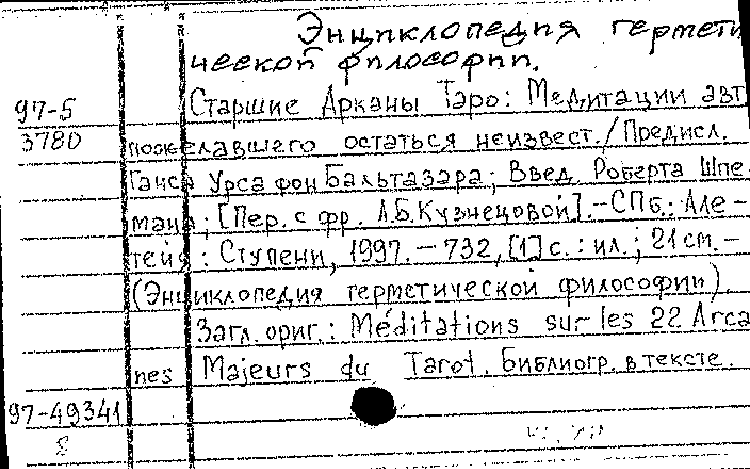 Энциклопедия гермети
ческой философии.
97-5
3780
Старшие Арканы Таро: Медитации авт
пожелавшего остаться неизвест./Предисл.
Ганса Урса фон Бальтазара; Введ. Роберта Шпе
мана; [Пер. с фр. Л.Б.Кузнецовой].-СПб.: Але-
тейя: Ступени, 1997.-732,[1] с.: ил.; 21 см.-
(Энциклопедия герметической философии).
Загл. ориг.: Méditations sur les 22 Arca
nes Majeurs du Tarot. Библиогр. в тексте.
97-49341